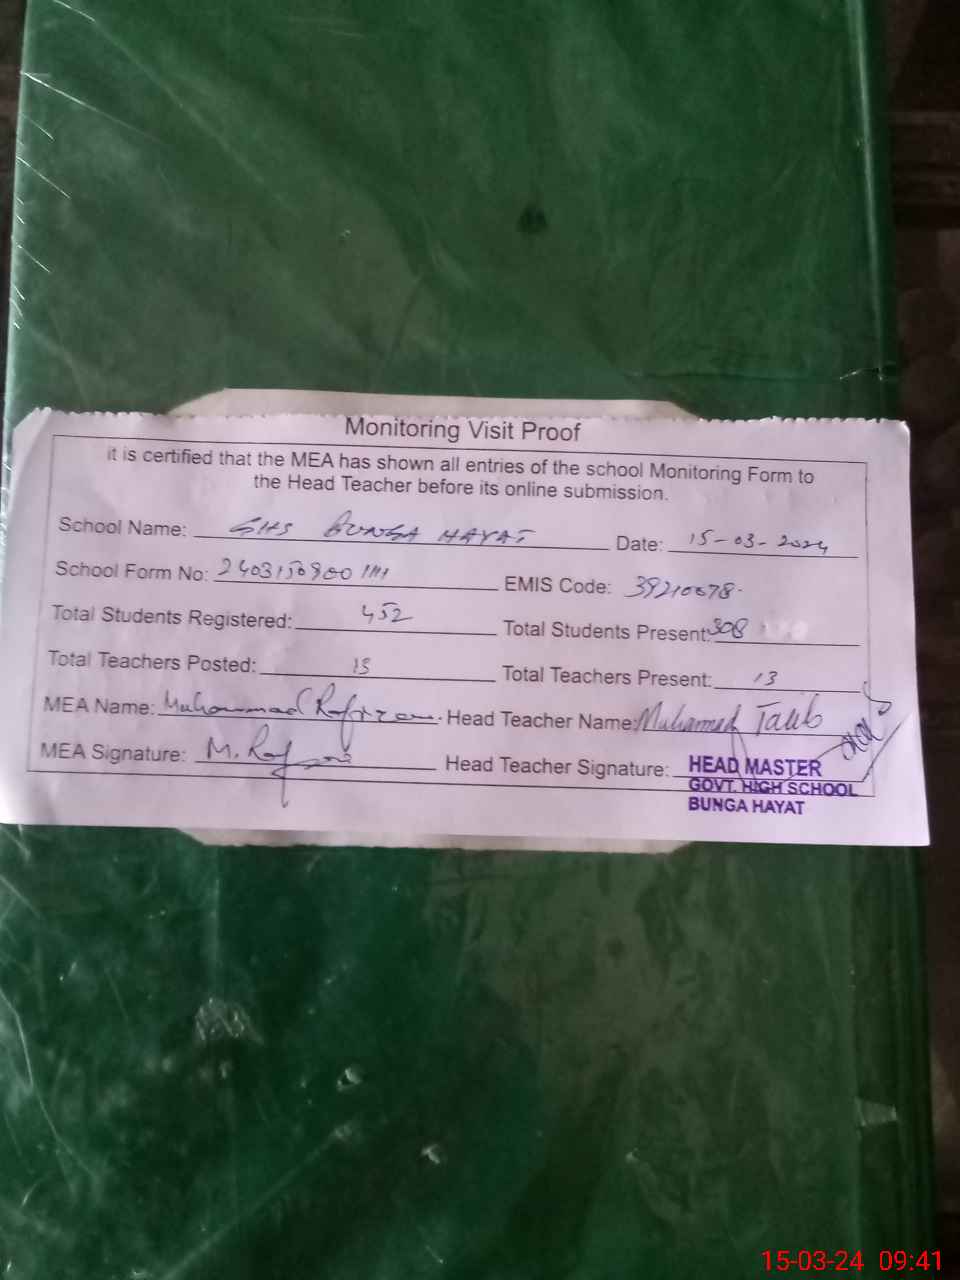 Monitoring Visit Proof
it is certified that the MEA has shown all entries of the school Monitoring Form to
the Head Teacher before its online submission.
School Name: GHS BUNGA HAYAT Date: 15-03-2024
School Form No: EMIS Code: 39210078.
Total Students Registered: 452 Total Students Present: 308
Total Teachers Posted: 15 Total Teachers Present: 13
MEA Name: Muhammad Head Teacher Name: Muhamad Talib
MEA Signature: M. Head Teacher Signature:
HEAD MASTER
GOVT. HIGH SCHOOL
BUNGA HAYAT
15-03-24 09:41